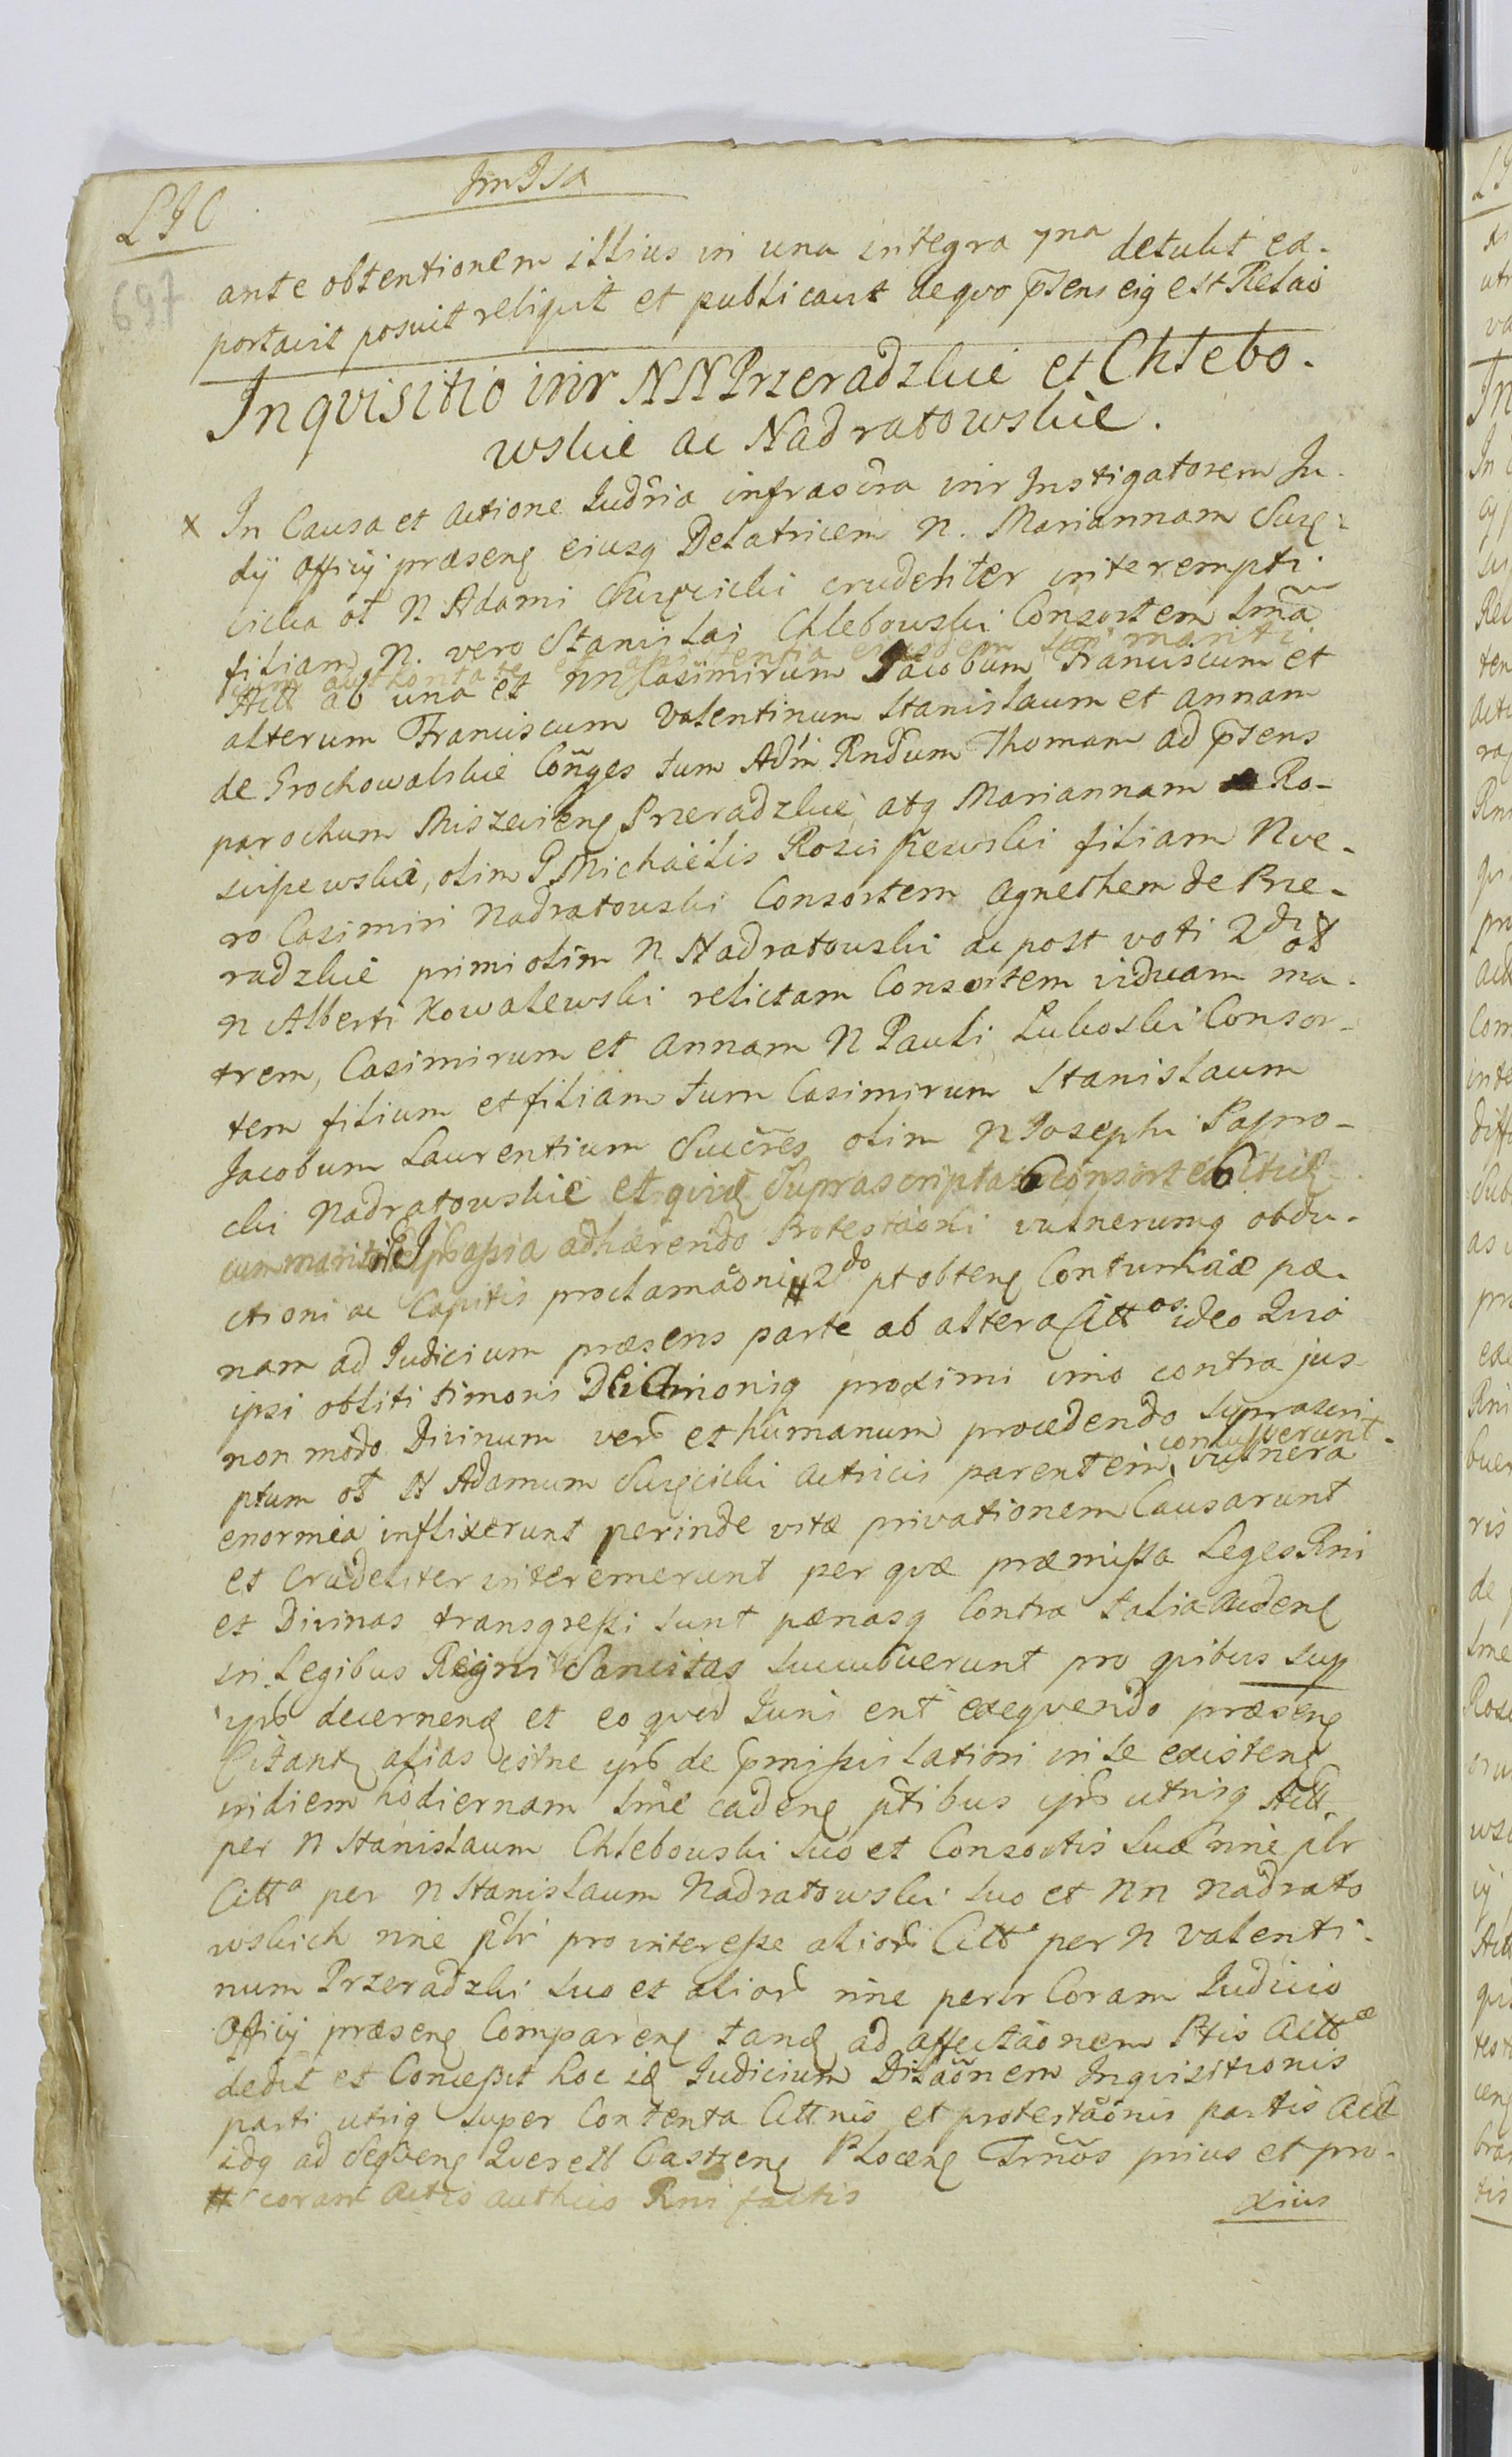 LJC
JmJsa
697
ante obtentionem illius in una integra 7na detulit ex-
portavit posuit reliquit et publicavit de quo p̃sens eiq est Relaō
Inqvisitio inr NN Przeradzkie et Chlebo-
wskie ac Nadratowskie.
x In Causa et actione Iudria infrascra inr Instigatorem Ju-
dÿ Officij præsenę eiusq Delatricem N. Mariannam Suię-
cicka ol N Adami Suięcicki crudeliter interempti
filiam N. vero Stanislai Chlebowski Consortem Sm̃a
cum authoritate et assistentia eiusdem sui mariti
Actt ab una et NN Casimirum Jacobum Franciscum et
alterum Franciscum Valentinum Stanislaum et Annam
de Grochowalskie Coñges tum Adm Rndum Thomam ad p̃sens
parochum Miszevienę Przeradzkie atq Mariannam Ro-
sciszewska, olim G Michaëlis Rosciszewski filiam N ve-
ro Casimiri Nadratowski Consortem Agnethem de Prze-
radzkie primi olim N Nadratowski ac post voti 2di ol
N Alberti Kowalewski relictam Consortem viduam ma-
trem, Casimirum et Annam N Pauli Lukoski Consor-
tem filium et filiam tum Casimirum Stanislaum
Jacobum Laurentium Succres olim N Josephi Papro-
cki Nadratowskie et quidę Suprascriptas Consortes
cum maritis adhærendo Protestaōni vulnerumq obdu-
ctioni ac Capitis proclamaōni # 2do pt obtenę Contumaciæ pæ-
nam ad Iudicium præsens parte ab altera Citt os ideo Quō
ipsi obliti timoris Dei proximi imo contra jus
non modo Divinum verō et humanum procedendo suprascri-
conculserunt
ptum ol N Adamum Suięcicki actricis parentem vulnera
enormia inflixerunt perinde vitæ privationem Causarunt
et crudeliter interemerunt per quæ præmissa Leges Rni
et Divinas transgressi sunt pænasq Contra talia audenę
in Legibus Regni Sancitas succubuerunt pro quibus sup
ipsō decernenę et eo quod Iuris ent exequendo præsenę
Citantę alias citne ipsō de p̃missis latiori in se existenę
in diem hodiernam Sm̃e cadenę ptibus ipsō utrisq Actt
per N Stanislaum Chlebouski suo et Consortis suæ nine plr
Citta per N Stanislaum Nadratowski suo et NN Nadrato
wskich nine plr pro interesse alior Citt per N Valenti-
num Przeradzki suo et alior nine perlr Coram Iudicio
Officij præsenę Comparenę tandę ad affectaōnem Ptis Acttæ
dedit et Concessit hoc idę Iudicium Dilaōnem Inqvisitionis
parti utriq super Contenta Cittnis et protestaōnis partis Actt
idq ad Seqvenę Querell Castrenę Plocenę Trm̃os prius et pro-
# coram Actis authcis Rni factis
xius